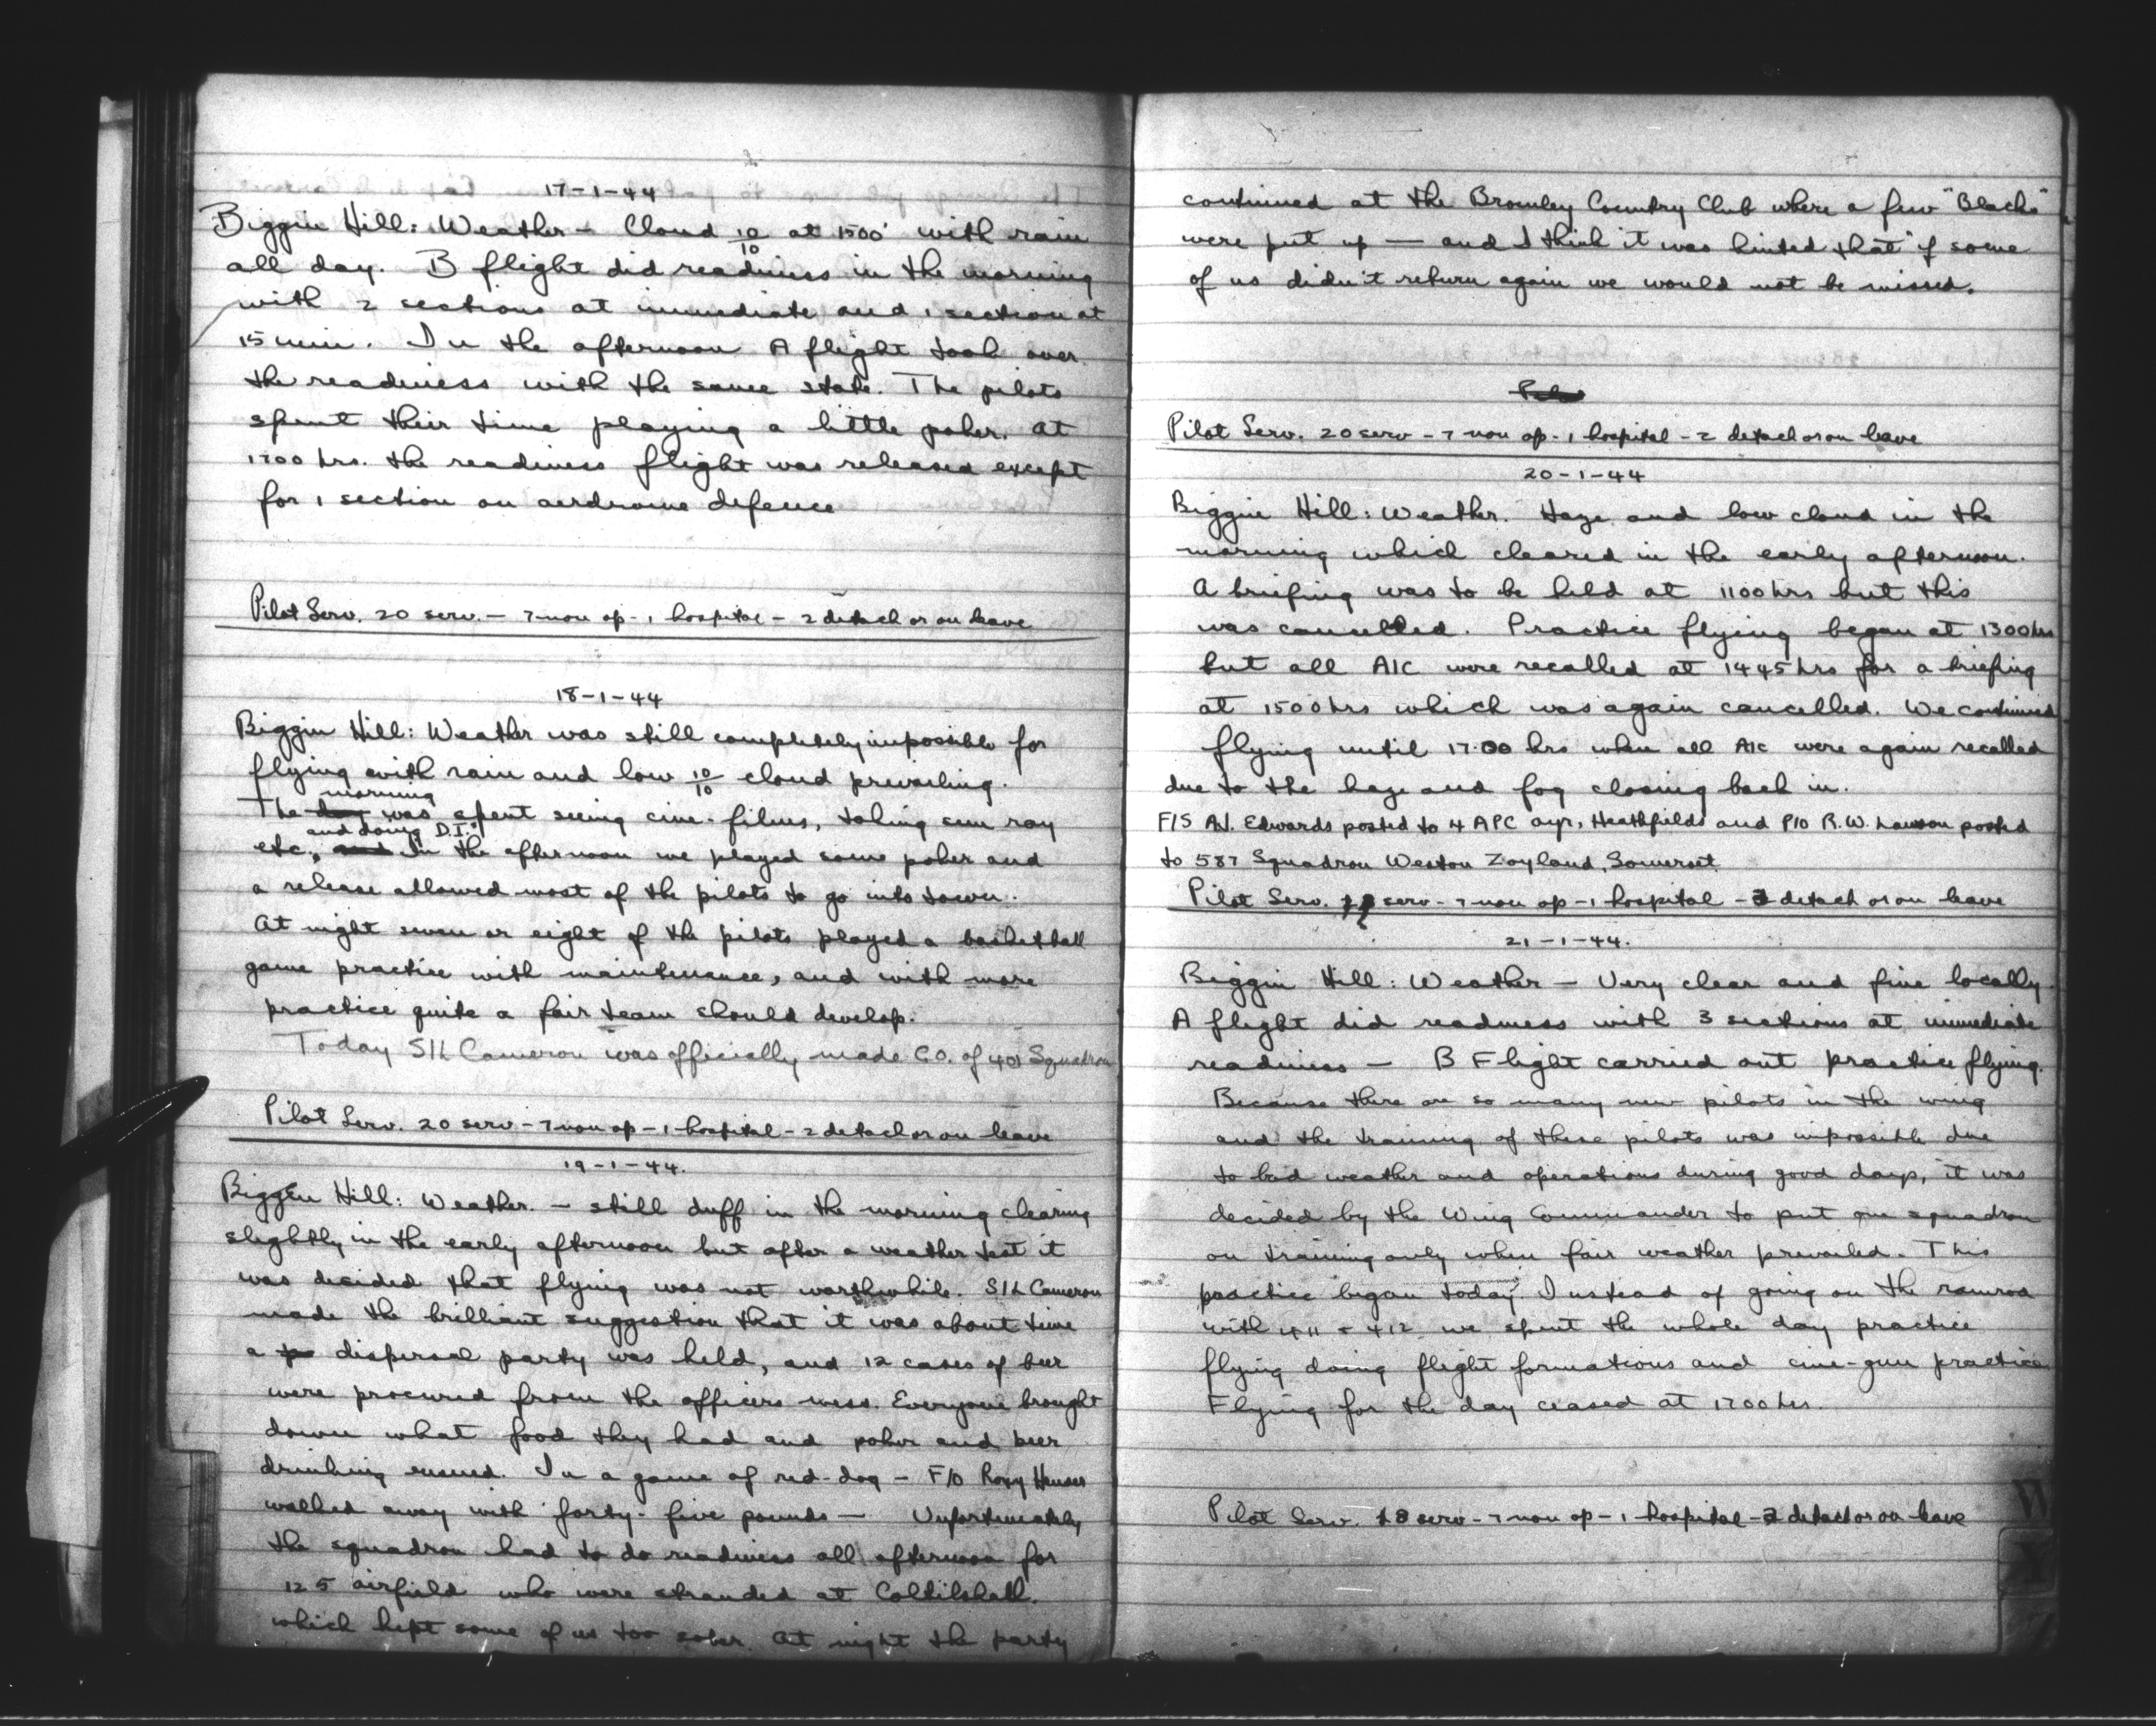 17-1-44
Biggin Hill: Weather - Cloud 10/10 at 1500' with rain
all day. B flight did readiness in the morning
with 2 sections at immediate and 1 section at
15 min. In the afternoon A flight took over
the readiness with the same state. The pilots
spent their time playing a little poker. At
1700 hrs. the readiness flight was released except
for 1 section on aerdrome defence
Pilot Serv. 20 serv. - 7 non op - 1 hospital - 2 detach or on leave
18-1-44
Biggin Hill: Weather was still completely impossible for
flying with rain and low 10/10 cloud prevailing.
morning
The day was spent seeing cine-films, taking sun ray
and doing D.I.'s
etc., and In the afternoon we played some poker and
a release allowed most of the pilots to go into town.
At night seven or eight of the pilots played a basketball
game practice with maintenance, and with more
practice quite a fair team should develop.
Today S/L Cameron was officially made C.O. of 401 Squadron
Pilot Serv. 20 serv - 7 non op - 1 hospital - 2 detach or on leave
19-1-44.
Biggin Hill: Weather. - still duff in the morning clearing
slightly in the early afternoon but after a weather test it
was decided that flying was not worthwhile. S/L Cameron
made the brilliant suggestion that it was about time
a dispersal party was held, and 12 cases of beer
were procured from the officers mess. Everyone brought
down what food they had and poker and beer
drinking ensued. In a game of red-dog - F/O Roxy Hauser
walked away with forty-five pounds - Unfortunately
the squadron had to do readiness all afternoon for
125 airfield who were stranded at Coltilshall.
which kept some of us too sober. At night the party
continued at the Bromley Country Club where a few "Blacks"
were put up - and I think it was hinted that if some
of us didn't return again we would not be missed.
Pilot Serv. 20 serv - 7 non op - 1 hospital - 2 detach or on leave
20-1-44
Biggin Hill: Weather. Haze and low cloud in the
morning which cleared in the early afternoon.
A briefing was to be held at 1100 hrs but this
was cancelled. Practice flying began at 1300 hrs
but all A/C were recalled at 1445 hrs for a briefing
at 1500 hrs which was again cancelled. We continued
flying until 17.00 hrs when all A/C were again recalled
due to the haze and fog closing back in.
F/S A.J. Edwards posted to 4 APC ayr, Heathfields and P/O R.W. Lawson posted
to 587 Squadron Weston Zoyland, Somerset.
Pilot Serv. serv - 7 non op - 1 hospital - 3 detach or on leave
21-1-44.
Biggin Hill: Weather - Very clear and fine locally.
A flight did readiness with 3 sections at immediate
readiness - B Flight carried out practice flying.
Because there are so many new pilots in the wing
and the training of these pilots was impossible due
to bad weather and operations during good days, it was
decided by the Wing Commander to put one squadron
on training only when fair weather prevailed. This
practice began today. Instead of going on the ramrod
with 411 & 412 we spent the whole day practice
flying doing flight formations and cine-gun practice
Flying for the day ceased at 1700 hrs.
Pilot Serv. 18 serv - 7 non op - 1 hospital - 3 detach or on leave
W
Y
Z